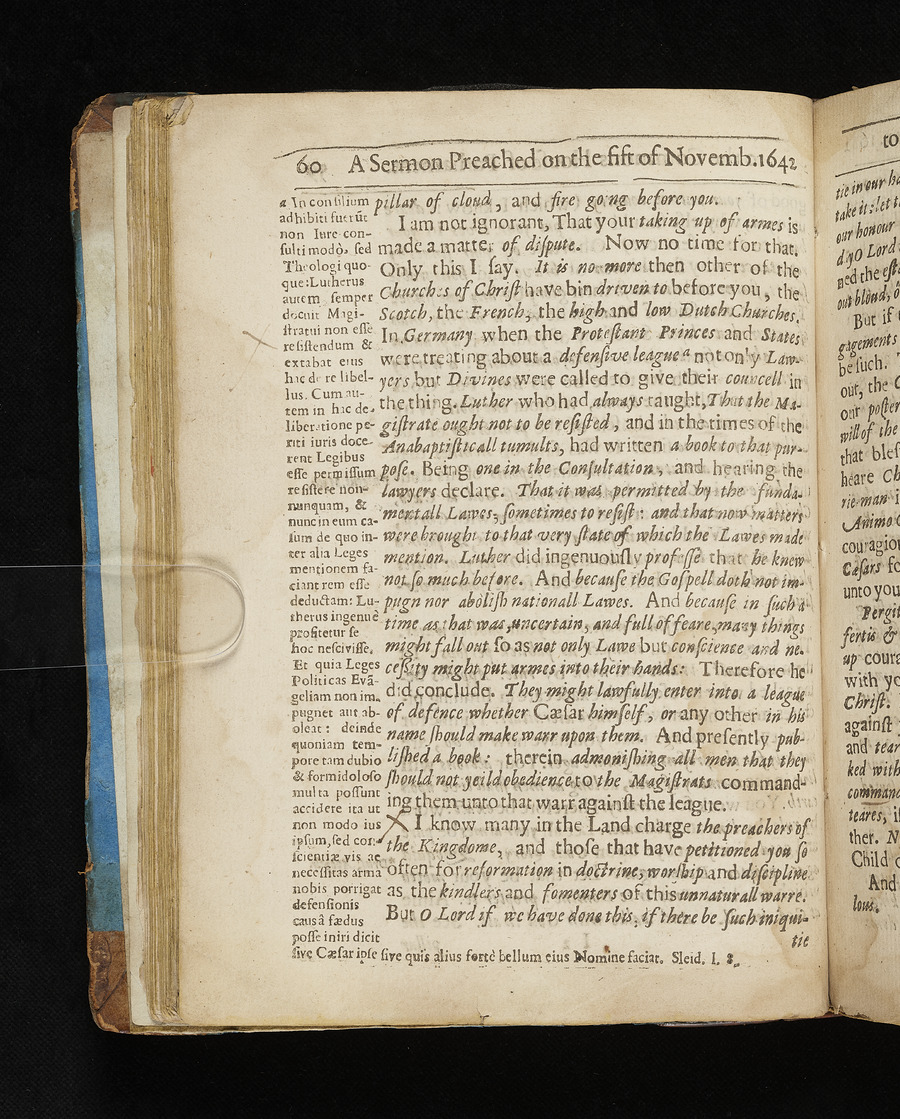 60 A Sermon Preached on the fift of Novemb.1642
pillar of cloud, and fire going before you.
I am not ignorant, That your taking up of armes is
made a matter of diſpute. Now no time for that.
Only this I ſay. It is no more then other of the
Churches of Chriſt have bin driven to before you, the
Scotch, the French, the high and low Dutch Churches.
In Germany when the Proteſtant Princes and States
were treating about a defenſive league a not only Law-
yers but Divines were called to give their councell in
the thing. Luther who had always taught, That the Ma-
giſtrate ought not to be reſiſted, and in the times of the
Anabaptiſticall tumults, had written a book to that pur-
poſe. Being one in the Conſultation, and hearing the
lawyers declare. That it was permitted by the funda-
mentall Lawes, ſometimes to reſiſt: and that now matters
were brought to that very ſtate of which the Lawes made
mention. Luther did ingenuouſly profeſſe that he knew
not ſo much before. And becauſe the Goſpell doth not im-
pugn nor aboliſh nationall Lawes. And becauſe in ſuch a
time as that was, uncertain, and full of feare, many things
might fall out ſo as not only Lawe but conſcience and ne-
ceſſity might put armes into their hands: Therefore he
did conclude. They might lawfully enter into a league
of defence whether Cæſar himſelf, or any other in his
name ſhould make warr upon them. And preſently pub-
liſhed a book: therein admoniſhing all men that they
ſhould not yeild obedience to the Magiſtrats command-
ing them unto that warr againſt the league.
I know many in the Land charge the preachers of
the Kingdome, and thoſe that have petitioned you ſo
often for reformation in doctrine, worſhip and diſcipline
as the kindlers and fomenters of this unnaturall warre.
But O Lord if we have done this, if there be ſuch iniqui-
tie
a In conſilium
adhibiti fuerūt
non Iure con-
ſulti modò, ſed
Theologi quo-
que: Lutherus
autem ſemper
docuit Magi-
ſtratui non eſſe
reſiſtendum &
extabat eius
hac de re libel-
lus. Cum au-
tem in hac de-
liberatione pe-
riti iuris doce-
rent Legibus
eſſe permiſſum
reſiſtere non-
nunquam, &
nunc in eum ca-
ſum de quo in-
ter alia Leges
mentionem fa-
ciant rem eſſe
deductam: Lu-
therus ingenuè
profitetur ſe
hoc neſciviſſe.
Et quia Leges
Politicas Evā-
geliam non im-
pugnet aut ab-
oleat: deinde
quoniam tem-
pore tam dubio
& formidoloſo
multa poſſunt
accidere ita ut
non modo ius
ipſum, ſed con-
ſcientiæ vis ac
neceſſitas arma
nobis porrigat
defenſionis
cauſâ fædus
poſſe iniri dicit
ſive Cæſar ipſe ſive quis alius fortè bellum eius Nomine faciat. Sleid. l. 8.
to
tie in our
take it: let
our honour
d, O Lord
ned the
out bloud,
But if
gagements
be ſuch.
out, the
our poſter
will of the
that bleſ
heare
rie man
Animo
couragio
Cæſars
unto you
Pergit
fertis &
up coura
with
Chriſt.
againſt
and tear
ked with
command
teares,
ther.
Child
And
lous.